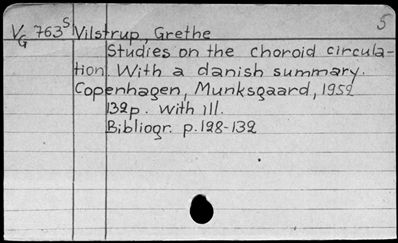 5
VG 763S Vilstrup, Grethe
Studies on the choroid circula-
tion. With a danish summary.
Copenhagen, Munksgaard, 1952
132p. With ill.
Bibliogr. p.128-132